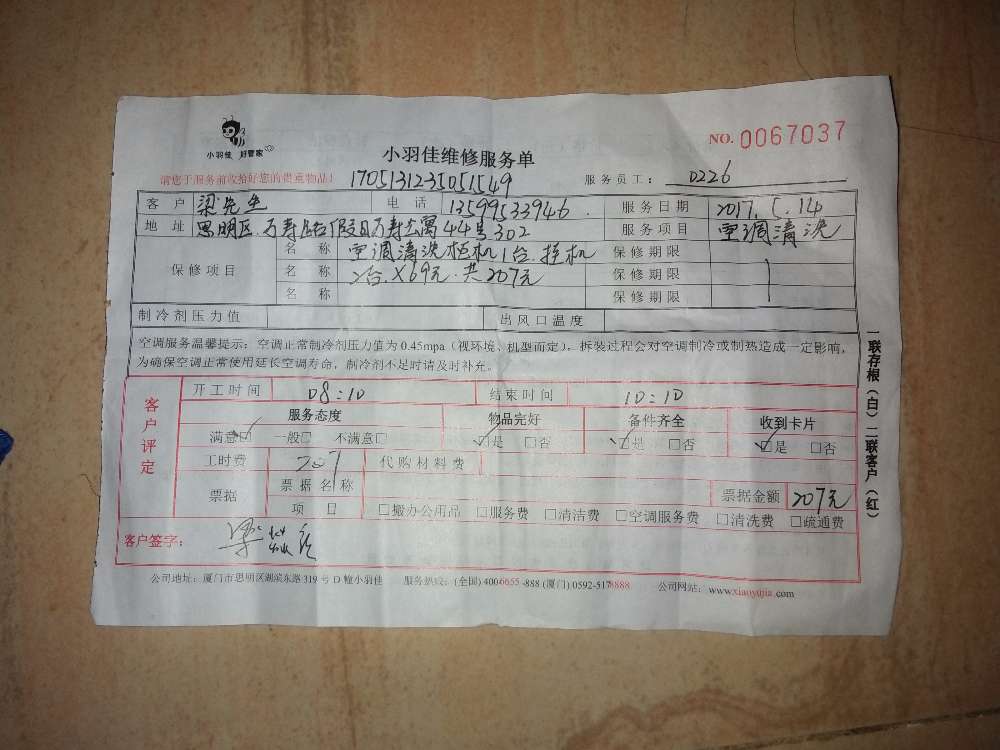 小羽佳 好管家
小羽佳维修服务单
NO. 0067037
请您于服务前收拾好您的贵重物品! 1705131235051549 服务员工: D226
客户 梁先生 电话 13599533946 服务日期 2017.5.14
地址 思明区万寿路假日万寿公寓44号302 服务项目 空调清洗
保修项目 名称 空调清洗柜机1台.挂机 保修期限
名称 2台X69元.共207元 保修期限
名称 保修期限
制冷剂压力值 出风口温度
空调服务温馨提示: 空调正常制冷剂压力值为 0.45mpa (视环境、机型而定), 拆装过程会对空调制冷或制热造成一定影响,
为确保空调正常使用延长空调寿命, 制冷剂不足时请及时补充。
客户评定 开工时间 08:10 结束时间 10:10
服务态度 物品完好 备件齐全 收到卡片
满意☑ 一般□ 不满意□ ☑是 □否 ☑是 □否 ☑是 □否
工时费 207 代购材料费
票据 票据名称 票据金额 207元
项目 □搬办公用品 □服务费 □清洁费 □空调服务费 □清洗费 □疏通费
客户签字: 梁
公司地址: 厦门市思明区湖滨东路319号D幢小羽佳 服务热线: (全国) 4006655-888 (厦门) 0592-5178888 公司网站: www.xiaoyujia.com
一联存根(白)二联客户(红)